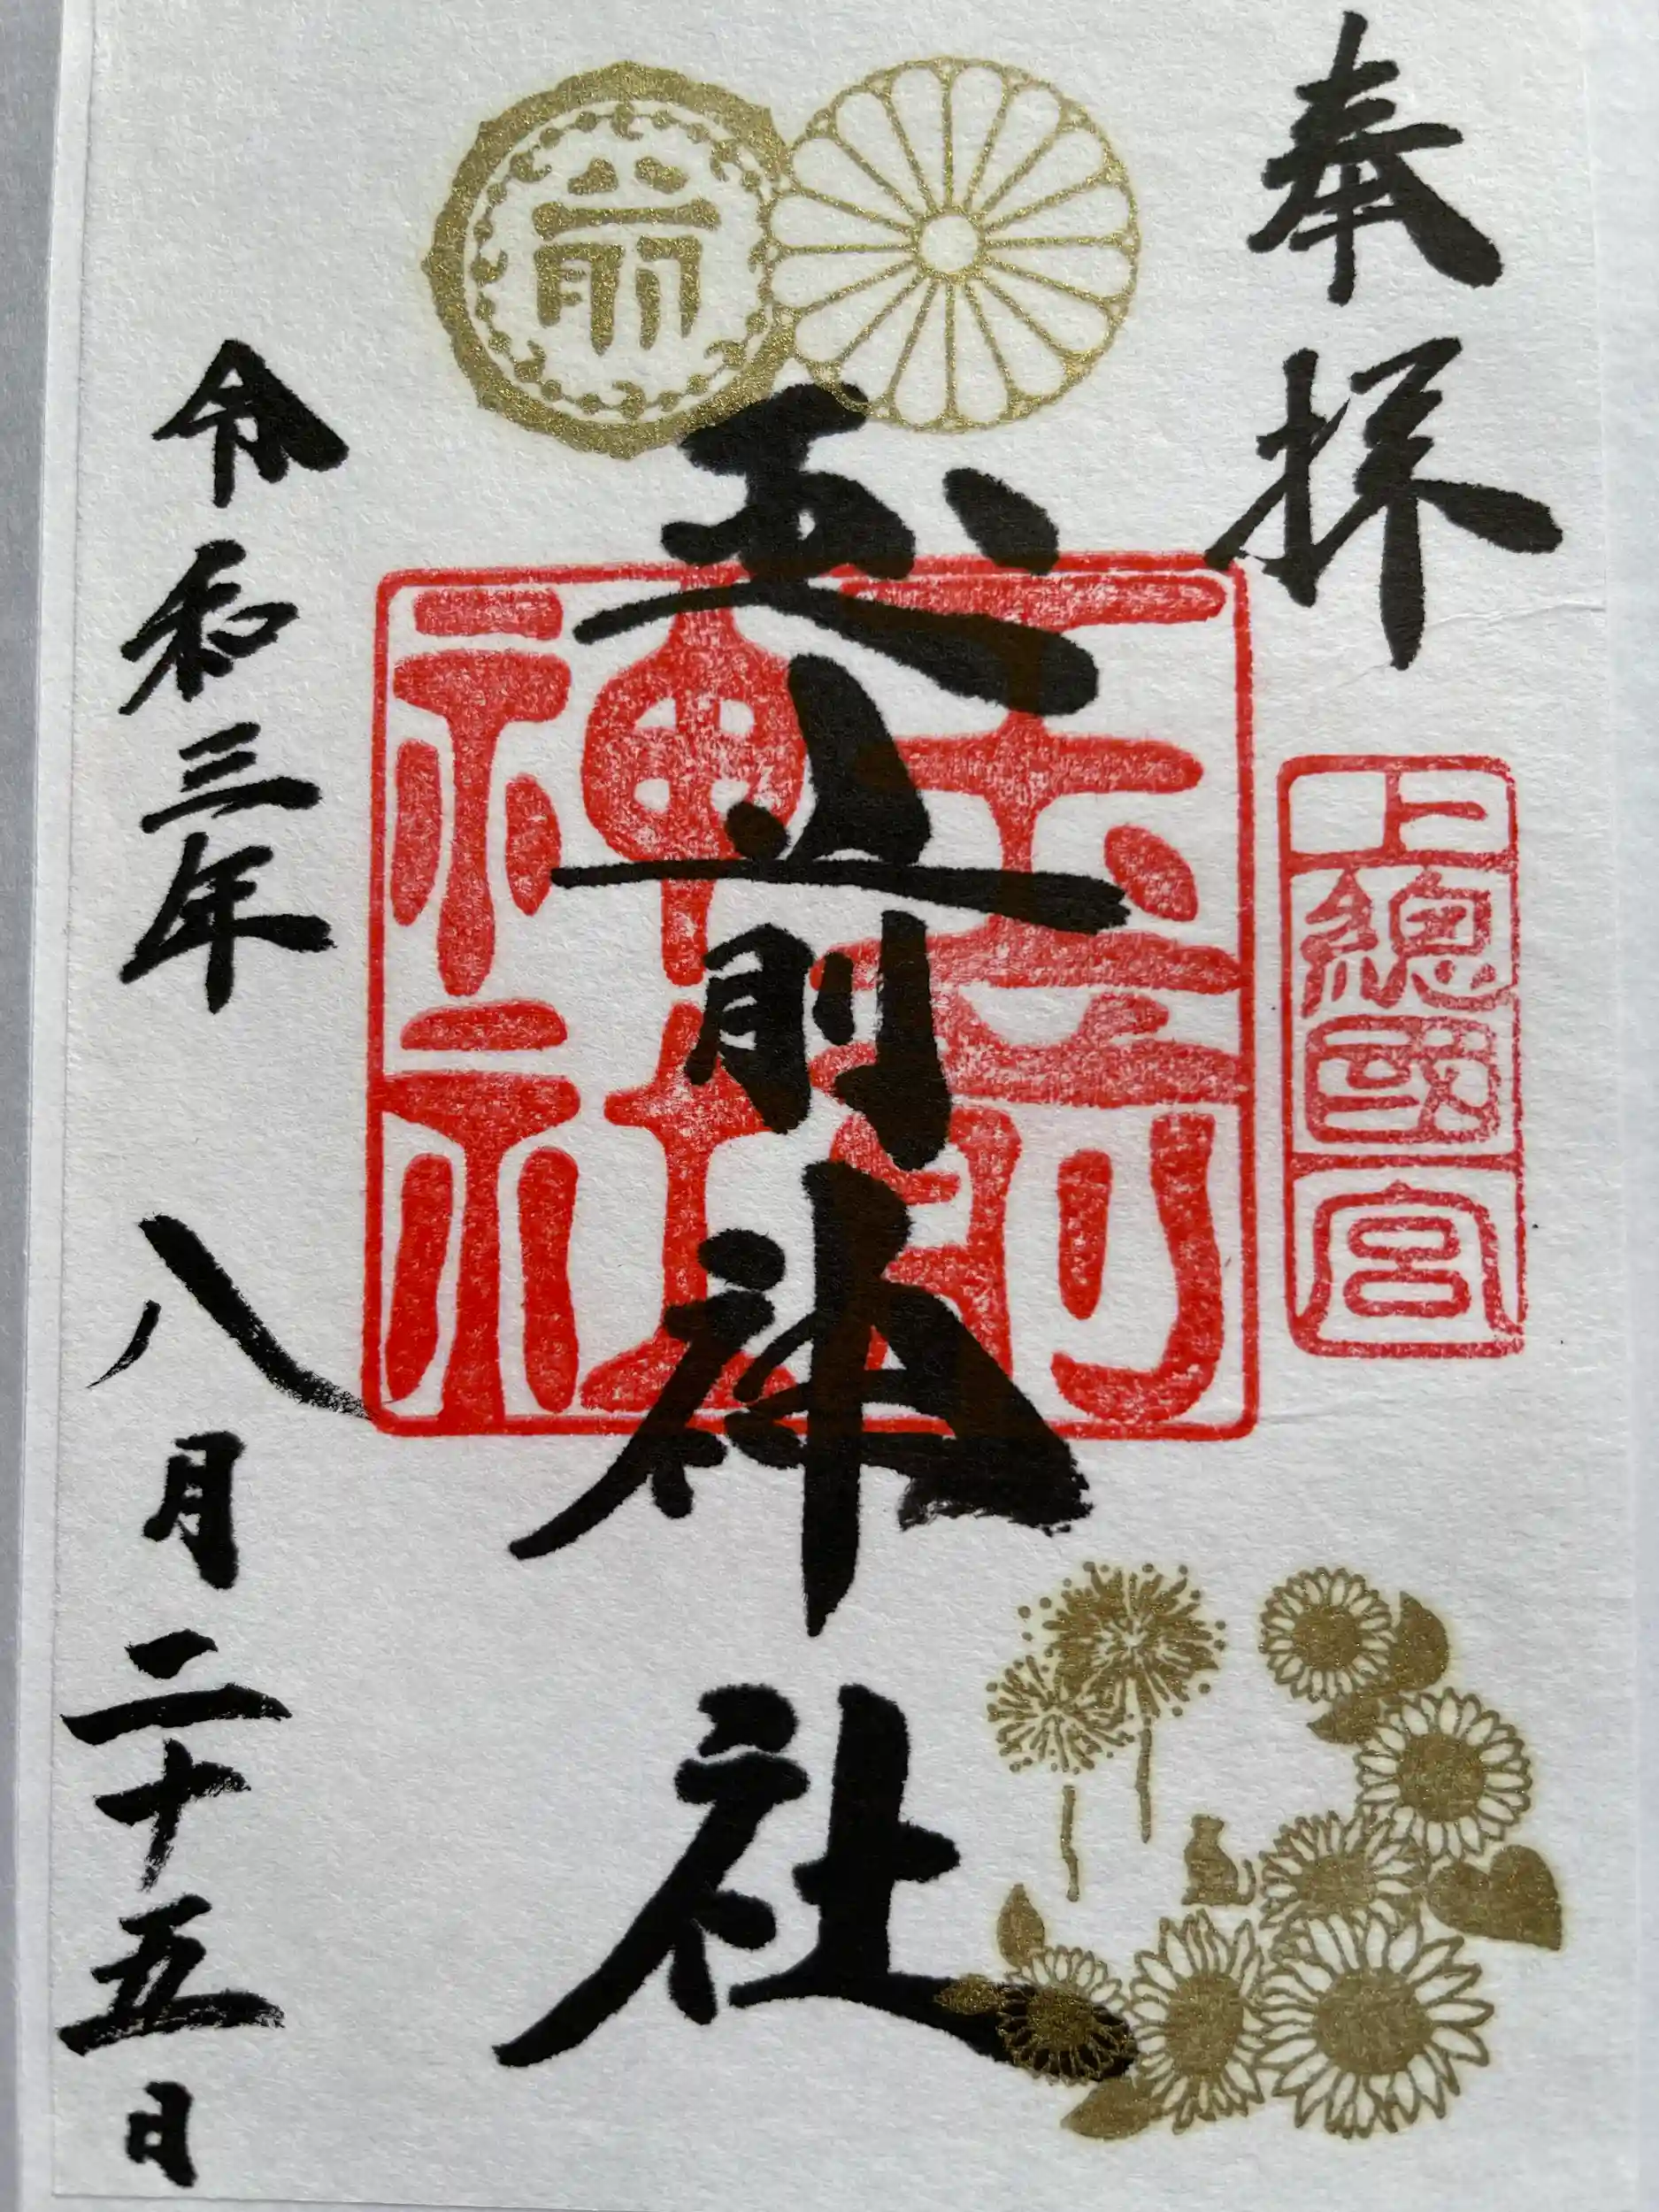 奉拝
上總國宮
前
玉前神社
玉前神社
令和三年八月二十五日